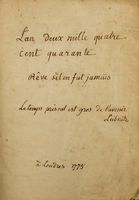 L'an deux mille quatre
cent quarante
Rêve s'il en fut jamais
Le temps présent est gros de l'avenir
Leibnitz
à Londres 1775